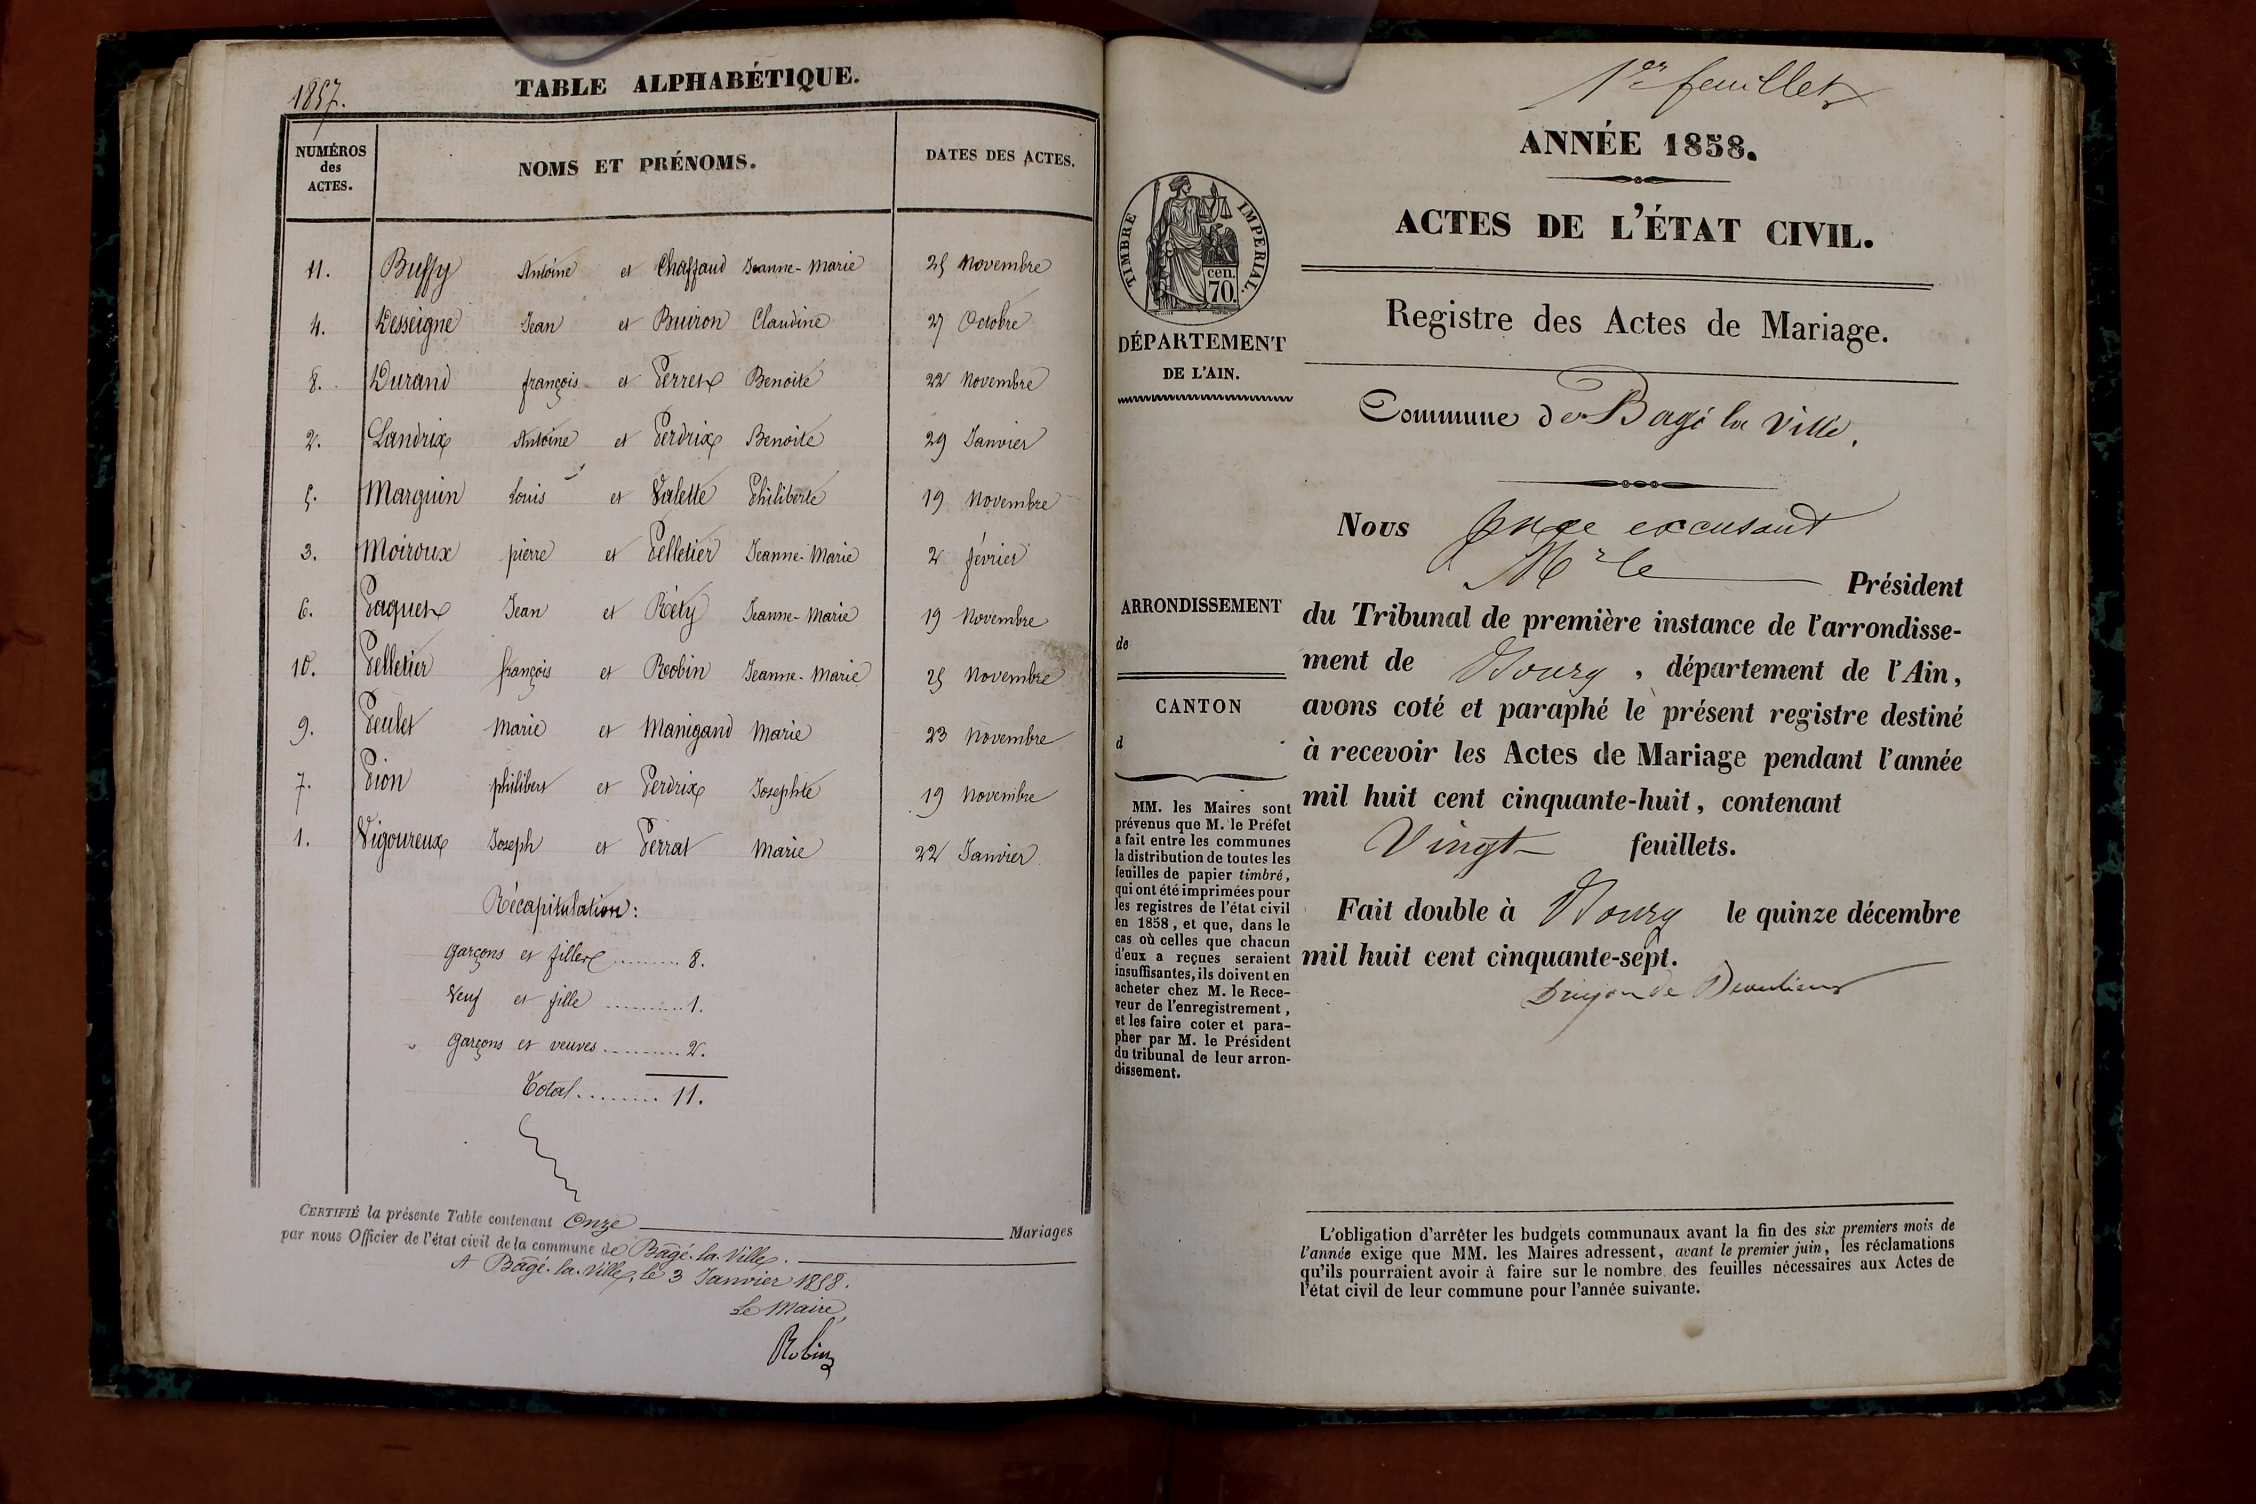 1857.
TABLE ALPHABÉTIQUE.
NUMÉROS des ACTES.
NOMS ET PRÉNOMS.
DATES DES ACTES.
11. Buffy Antoine et Chaffaud Jeanne-Marie 25 Novembre
4. Desseigne Jean et Buiron Claudine 27 Octobre
8. Durand françois et Perret Benoite 22 Novembre
2. Landrix Antoine et Perdrix Benoite 29 Janvier
5. Marguin Louis et Valette Philiberte 19 Novembre
3. Moiroux pierre et Pelletier Jeanne-Marie 2 février
6. Paquet Jean et Réty Jeanne-Marie 19 Novembre
10. Pelletier françois et Robin Jeanne-Marie 25 Novembre
9. Peulet Marie et Manigand Marie 23 Novembre
7. Pion philibert et Perdrix Josephte 19 Novembre
1. Vigoureux Joseph et Perrat Marie 22 Janvier.
Récapitulation:
garçons et filles ......... 8.
Veuf et fille .......... 1.
garçons et veuves .......... 2.
Total ........ 11.
CERTIFIÉ la présente Table contenant Onze Mariages
par nous Officier de l'état civil de la commune de Bagé-la-Ville.
A Bagé-la-Ville, le 3 Janvier 1858.
Le Maire
Robin
1er feuillet
ANNÉE 1858.
ACTES DE L'ÉTAT CIVIL.
TIMBRE IMPERIAL.
cen.
70.
DÉPARTEMENT
DE L'AIN.
Registre des Actes de Mariage.
Commune de Bagé la Ville.
ARRONDISSEMENT
de
CANTON
d
MM. les Maires sont
prévenus que M. le Préfet
a fait entre les communes
la distribution de toutes les
feuilles de papier timbré,
qui ont été imprimées pour
les registres de l'état civil
en 1858, et que, dans le
cas où celles que chacun
d'eux a reçues seraient
insuffisantes, ils doivent en
acheter chez M. le Rece-
veur de l'enregistrement,
et les faire coter et para-
pher par M. le Président
du tribunal de leur arron-
dissement.
Nous juge excusant
Mr le Président
du Tribunal de première instance de l'arrondisse-
ment de Bourg, département de l'Ain,
avons coté et paraphé le présent registre destiné
à recevoir les Actes de Mariage pendant l'année
mil huit cent cinquante-huit, contenant
Vingt feuillets.
Fait double à Bourg le quinze décembre
mil huit cent cinquante-sept.
L'obligation d'arrêter les budgets communaux avant la fin des six premiers mois de
l'année exige que MM. les Maires adressent, avant le premier juin, les réclamations
qu'ils pourraient avoir à faire sur le nombre des feuilles nécessaires aux Actes de
l'état civil de leur commune pour l'année suivante.